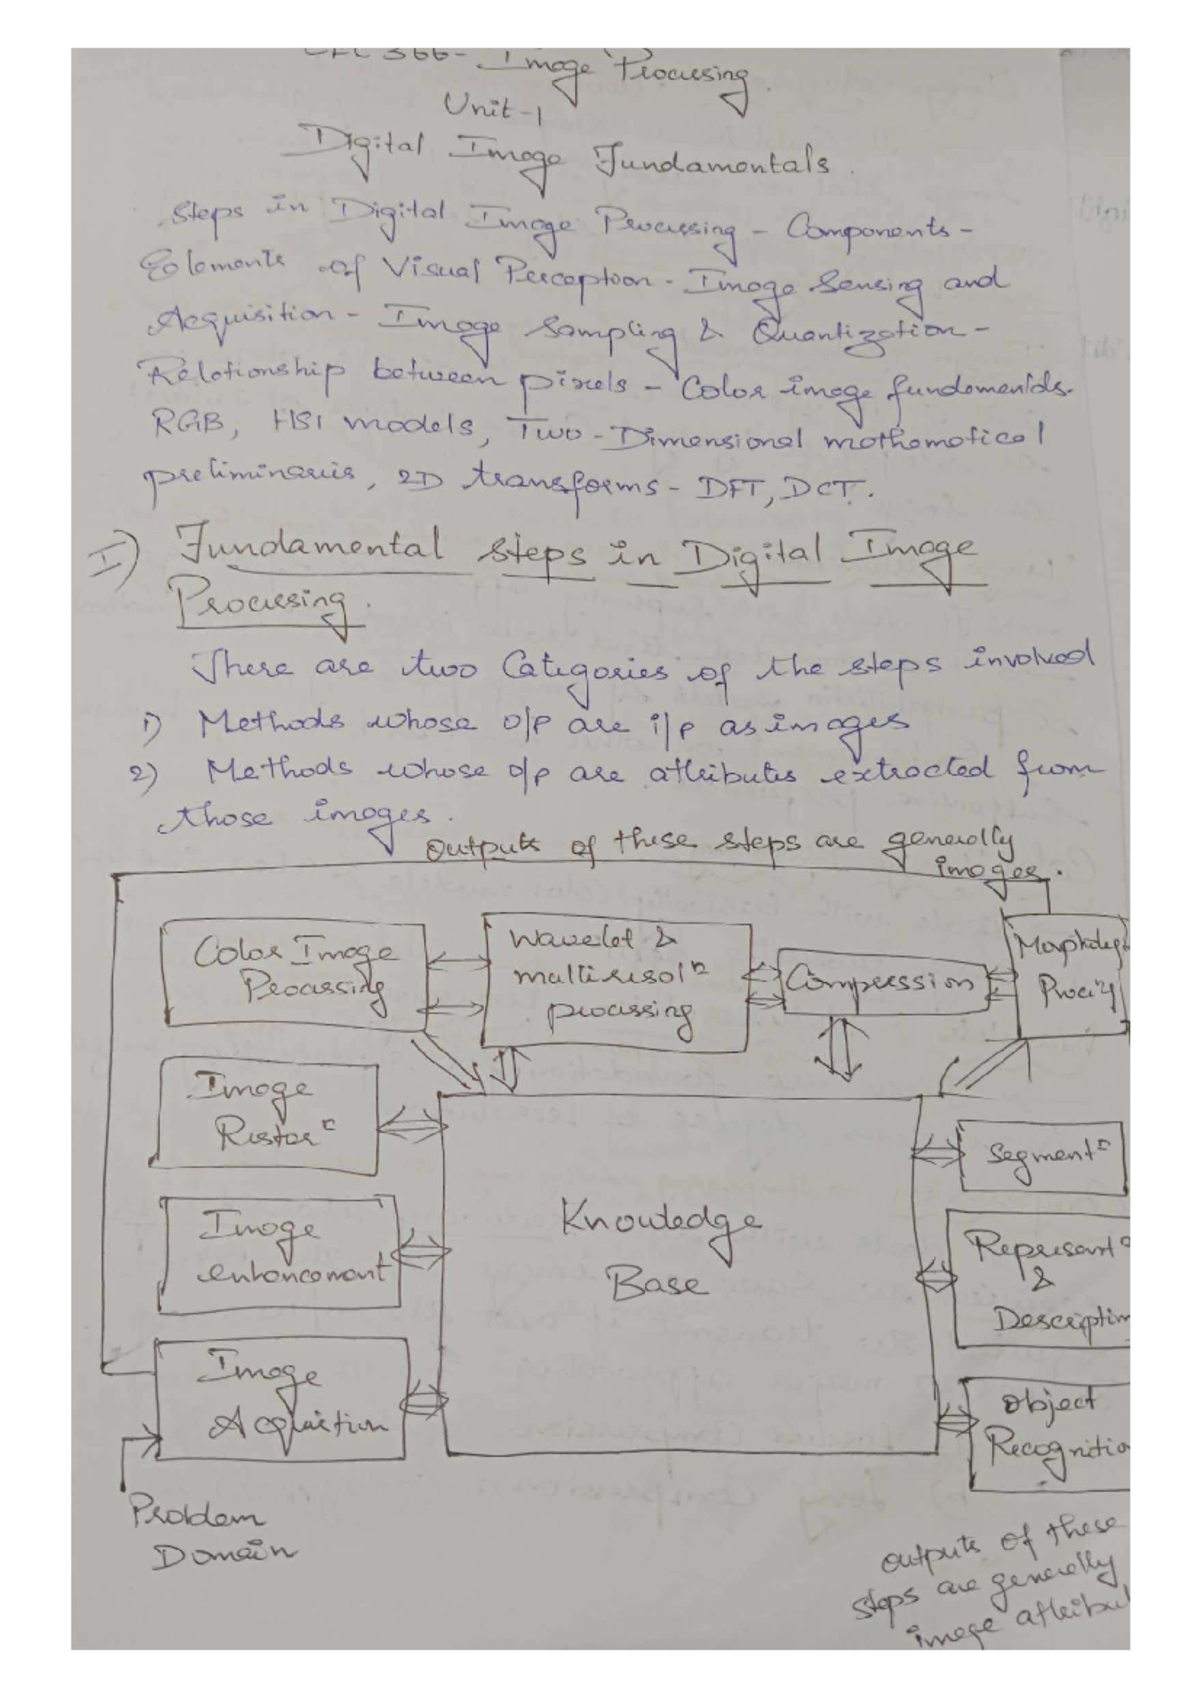 366- Image Processing
Unit-1
Digital Image Fundamentals.
Steps in Digital Image Processing - Components -
Elements of Visual Perception - Image Sensing and
Acquisition - Image Sampling & Quantization -
Relationship between pixels - Color image fundamentals.
RGB, HSI models, Two-Dimensional mathematical
preliminaries, 2D transforms - DFT, DCT.
I) Fundamental steps in Digital Image
Processing.
There are two Categories of the steps involved
1) Methods whose o/p are i/p as images
2) Methods whose o/p are attributes extracted from
those images.
outputs of these steps are generally
images.
Color Image
Processing
Wavelet &
multiresolⁿ
processing
Compression
Image
Restorⁿ
Segmentⁿ
Image
enhancement
Knowledge
Base
Representⁿ
&
Description
Image
Acquistion
Object
Recognitio
Problem
Domain
outputs of these
steps are generally
image attribu